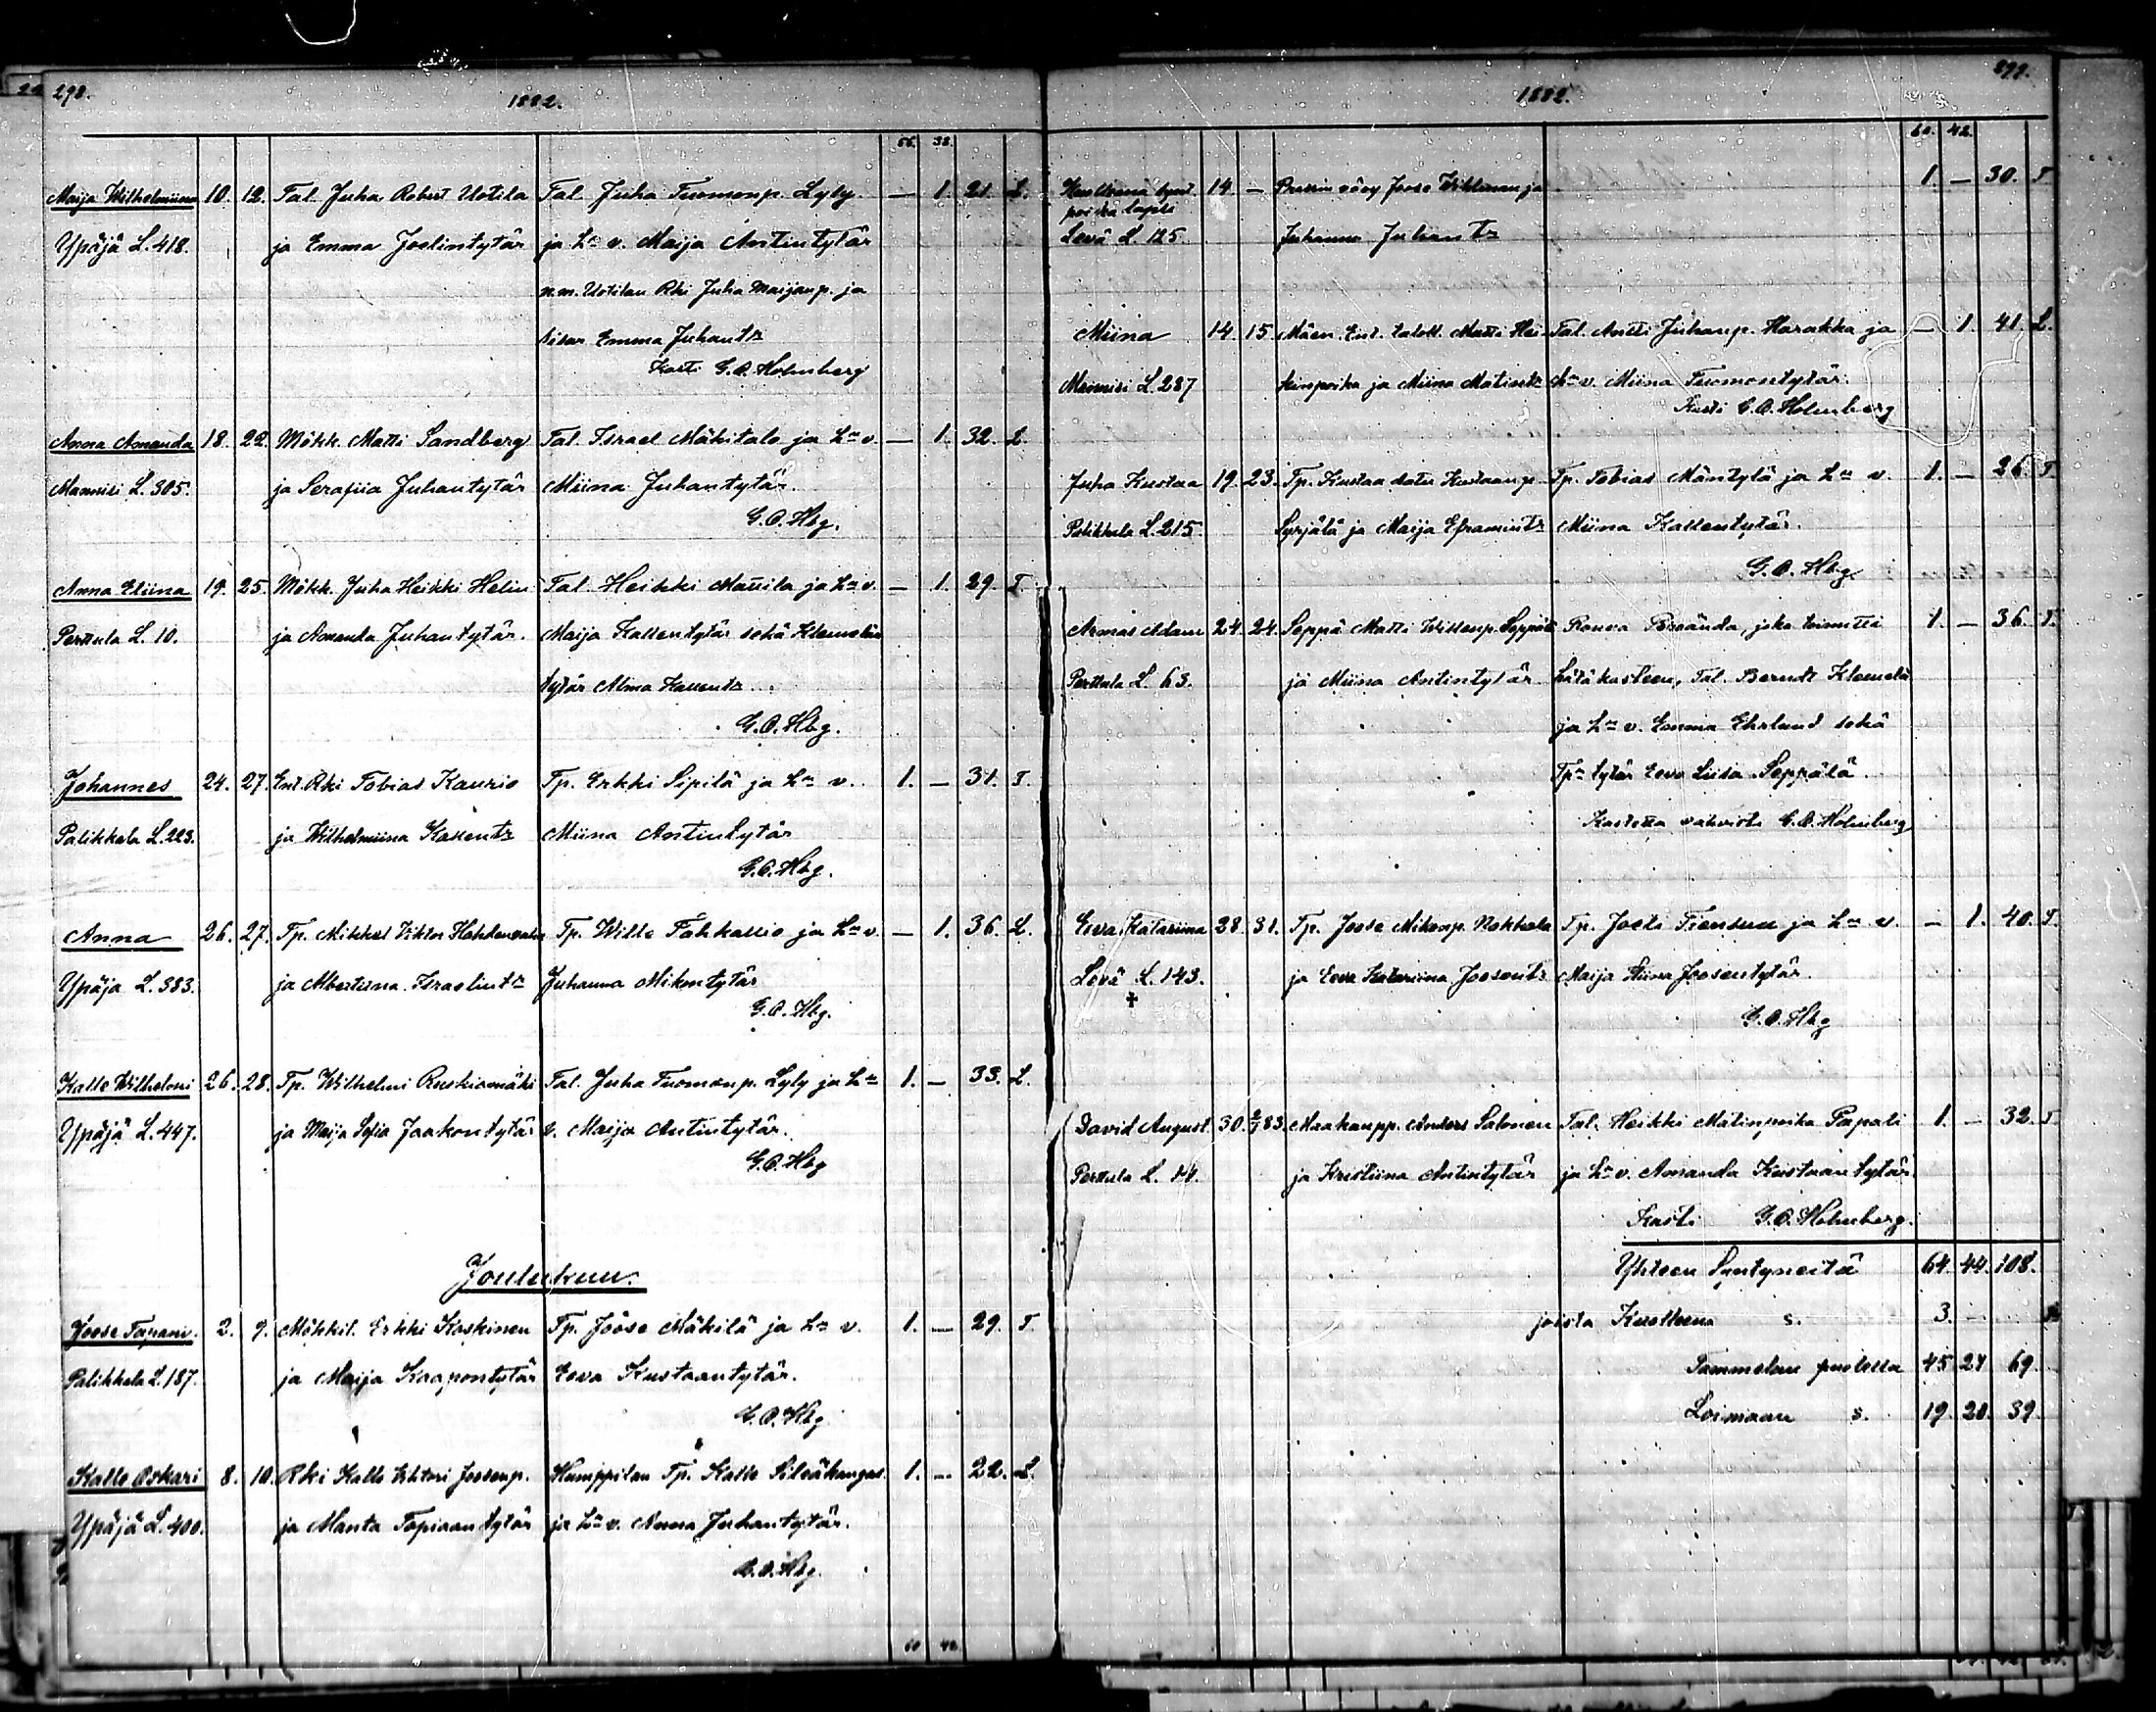 298.
1882.
56. 38.
Maija Wilhelmiina 10. 12. Tal. Juha Robert Uotila Tal. Juha Tuomonp. Lyly — 1. 21. L.
Ypäjä L. 418. ja Emma Joelintytär ja Lm v. Maija Antintytär
n.m. Uotilan Rki Juha Maijanp. ja
sisar Emma Juhantr
Kasti G.A. Holmberg
Anna Amanda 18. 22. Mökk. Matti Sandberg Tal. Israel Mäkitalo ja Lm v. — 1. 32. L.
Mannisi L. 305. ja Serafiia Juhantytär Miina Juhantytär.
G.A. Hbg.
Anna Eliina 19. 25. Mökk. Juha Heikki Helin Tal. Heikki Mattila ja Lm v. — 1. 29. T.
Perttula L. 10. ja Amanda Juhantytär. Maija Kallentytär sekä Klemelän
tytär Alma Kallentr
G.A. Hbg.
Johannes 24. 27. Ent. Rki Tobias Kaurio Tp. Erkki Sipilä ja Lm v. 1. — 31. T.
Palikkala L. 223. ja Wilhelmiina Kallentr Miina Antintytär
G.A. Hbg.
Anna 26. 27. Tp. Mikkel Viktor Tp. Wille Tähkallio ja Lm v. — 1. 36. L.
Ypäjä L. 383. ja Albertiina Israelintr Juhanna Mikontytär
G.A. Hbg.
Kalle Wilhelmi 26. 28. Tp. Wilhelmi Ruskiamäki Tal. Juha Tuomonp. Lyly ja Lm 1. — 33. L.
Ypäjä L. 447. ja Maija Sofia Jaakontytär v. Maija Antintytär.
G.A. Hbg
Joulukuu.
Joose Taavani. 2. 9. Mökkil. Erkki Koskinen Tp. Joose Mäkilä ja Lm v. 1. — 29. T
Palikkala L. 187. ja Maija Kaapontytär Eeva Kustaantytär.
G.A. Hbg
Kalle Oskari 8. 10. Rki Kalle Vihtori Joosenp. Humppilan Tp. Kalle Sileäkangas 1. — 22. L.
Ypäjä L. 400. ja Manta Tapiaantytär ja Lm v. Anna Juhantytär.
G.A. Hbg.
60 42
299.
1882.
60. 42.
Kuolleena synt. 14. — Joose Wikman ja 1. — 30. T
poika lapsi
Levä L. 125. Juhanna Juhantr
Miina 14. 15. Mäen. Ent. taloll. Matti Hei- Tal. Antti Juhanp. Harakka ja — 1 41. L.
Mannisi L. 287 kinpoika ja Miina Matintr Lm v. Miina Tuomontytär.
Kasti G.A. Holmberg
Juha Kustaa 19. 23. Tp. Kustaa Kustaanp. Tp. Tobias Mäntylä ja Lm v. 1. — 26. T.
Palikkala L. 215. Syrjälä ja Maija Eframintr Miina Kallentytär.
G.A. Hbg
Armas Adam 24. 24. Seppä Matti Willenp. Seppälä Rouva joka toimitti 1. — 36. T.
Perttula L. 63. ja Miina Antintytär hätäkasteen, Tal. Berndt Klemelä
ja Lm v. Emma Ehrlund sekä
Tpn tytär Eeva Liisa Seppälä
Kastetta vahvisti G.A. Holmberg
Eeva Katariina 28 31. Tp. Joose Mikonp. Nokkala Tp. Joeli Tiensuu ja Lm v. — 1. 40. T.
Levä L. 143. ja Eeva Katariina Joosentr Maija Miina Joosentytär.
✝
G.A. Hbg
David August 30. 2/1 83. Maakaupp. Anders Salonen Tal. Heikki Matinpoika Papali 1. — 32. T
Perttula L. 14. ja Kristiina Antintytär ja Lm v. Amanda Kustaantytär.
Kasti G.A. Holmberg.
Yhteen Syntyneitä 64. 44. 108.
joista Kuolleena s. 3. —
Tammelan puolella 45 24 69.
Loimaan s. 19 20. 39.